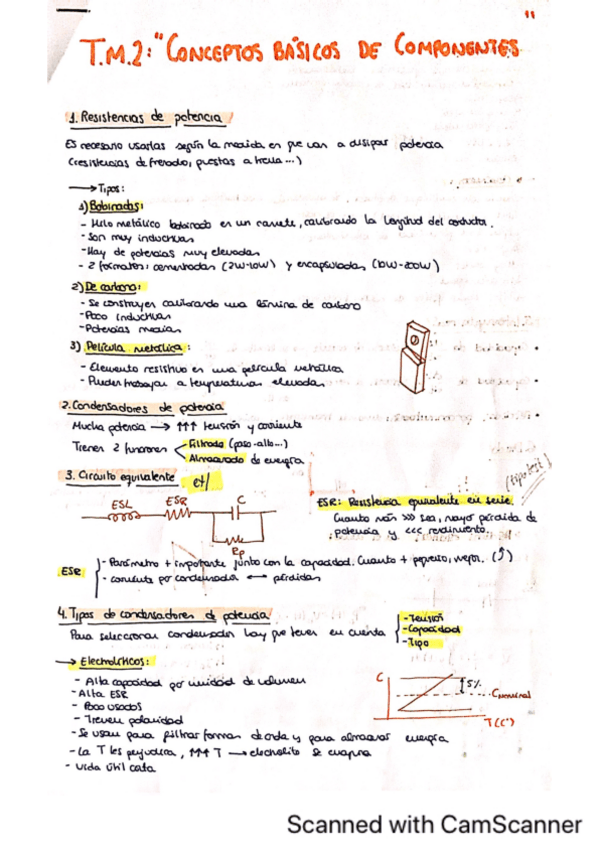 11
T.M.2: "CONCEPTOS BÁSICOS DE COMPONENTES
1. Resistencias de potencia
Es necesario usarlas según la medida en que van a disipar potencia
(resistencias de frenado, puestas a tierra...)
→ Tipos:
1) Bobinadas:
- Hilo metálico bobinado en un carrete, calibrando la longitud del conductor.
- Son muy inductivas
- Hay de potencias muy elevadas
- 2 formatos: cementadas (2W-10W) y encapsuladas (10W-200W)
2) De carbono:
- Se construyen calibrando una lámina de carbono
- Poco inductivas
- Potencias medias
3) Película metálica:
- Elemento resistivo es una película metálica
- Pueden trabajar a temperaturas elevadas
2. Condensadores de potencia
Mucha potencia → ↑↑↑ tensión y corriente
Tienen 2 funciones
- Filtrado (paso-alto...)
- Almacenado de energía
3. Circuito equivalente
(tipo test)
ESL ESR C
Rp
ESR: Resistencia equivalente en serie.
Cuanto más >>> sea, mayor pérdida de
potencia y <<< rendimiento.
ESR
- Parámetro + importante junto con la capacidad. Cuanto + pequeño, mejor.
- corriente por condensador ↔ pérdidas
4. Tipos de condensadores de potencia
Para seleccionar condensador hay que tener en cuenta
- Tensión
- Capacidad
- Tipo
→ Electrolíticos:
- Alta capacidad por unidad de volumen
- Alta ESR
- Poco usados
- Tienen polaridad
- Se usan para filtrar formas de onda y para almacenar energía
- La T les perjudica, ↑↑↑ T → electrolito se evapora
- Vida útil corta
C
5%
Cnominal
T(Cº)
Scanned with CamScanner